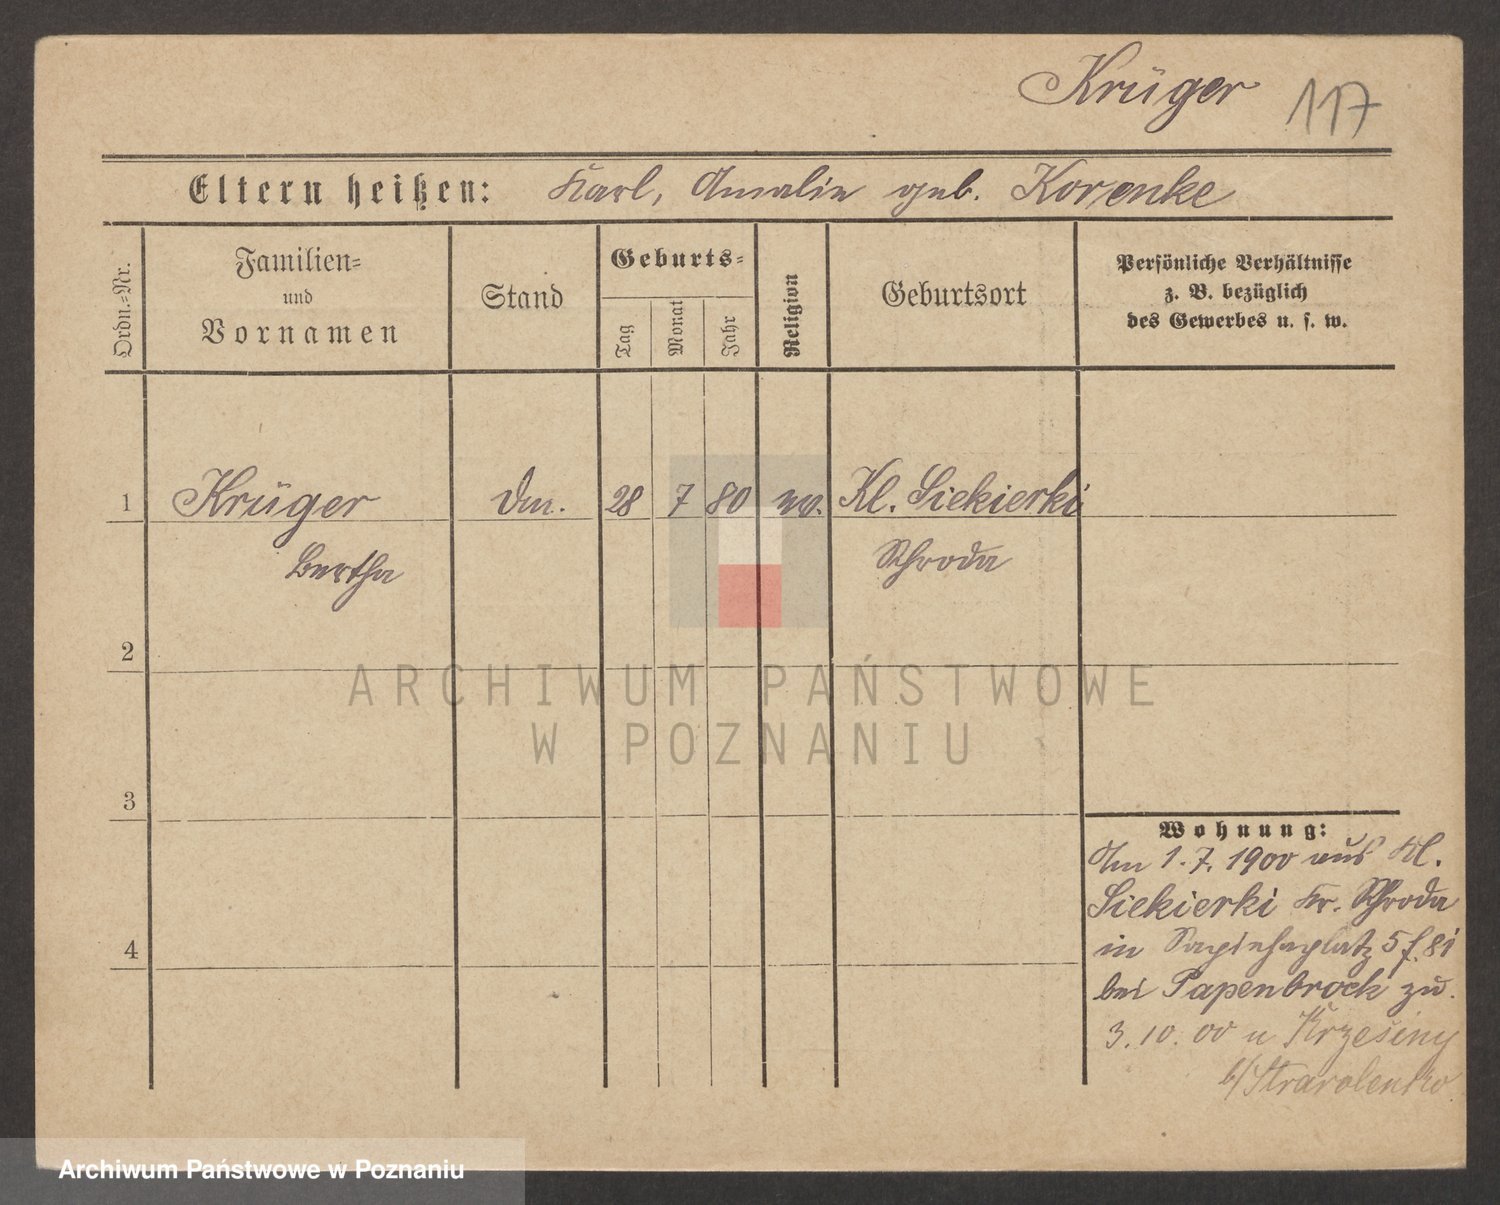 Krüger 117
Eltern heißen: Karl, Amalie geb. Korenke
Ordn.=Nr.
Familien=
und
Vornamen
Stand
Geburts=
Tag
Monat
Jahr
Religion
Geburtsort
Persönliche Verhältnisse
z. B. bezüglich
des Gewerbes u. s. w.
1 Krüger 28 7 80 ev. Kl. Siekierki
Bertha Schroda
2
3
4
Wohnung:
Am 1.7.1900 aus Kl.
Siekierki Kr. Schroda
in Sapiehaplatz 5
bei Papenbrock zu.
3.10.00 n Krzesiny
b/
ARCHIWUM PAŃSTWOWE
W POZNANIU
Archiwum Państwowe w Poznaniu